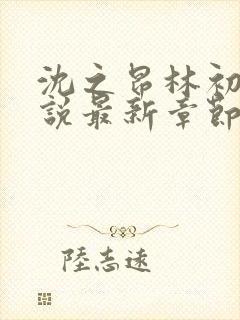 沈之昂林初
說最新章節
陸志遠